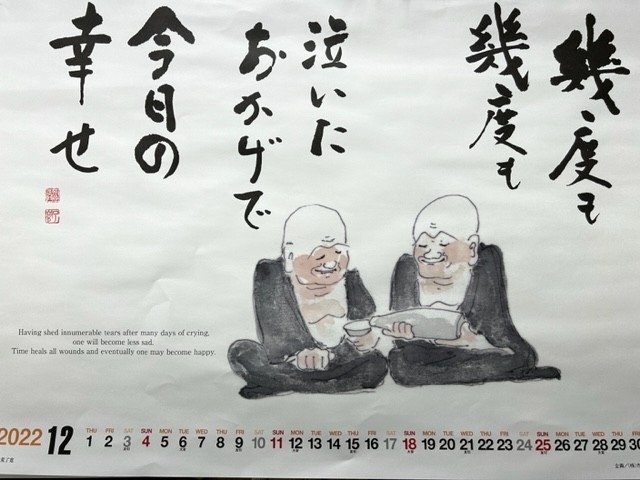 幾度も
幾度も
泣いた
おかげで
今日の
幸せ
Having shed innumerable tears after many days of crying,
one will become less sad.
Time heals all wounds and eventually one may become happy.
2022 12
THU FRI SAT SUN MON TUE WED THU FRI SAT SUN MON TUE WED THU FRI SAT SUN MON TUE WED THU FRI SAT SUN MON TUE WED THU FRI
1 2 3 4 5 6 7 8 9 10 11 12 13 14 15 16 17 18 19 20 21 22 23 24 25 26 27 28 29 30